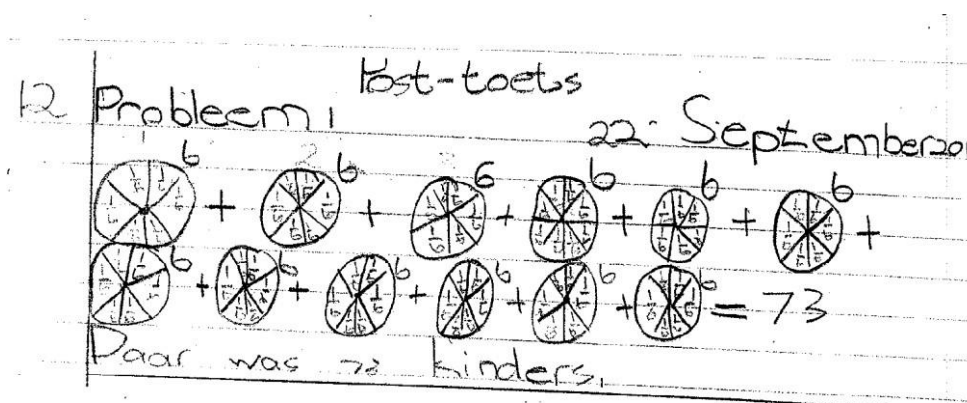 Post-toets
12 Probleem 1
22 September 201
1 2 3
6 + 6 + 6 + 6 + 6 + 6 +
6 + 6 + 6 + 6 + 6 + 6 = 73
Daar was kinders.